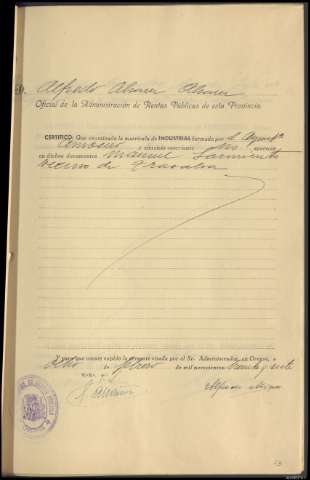 D. Alfredo Alvarez Alvarez
Oficial de la Administración de Rentas Públicas de esta Provincia
CERTIFICO: Que examinada la matrícula de INDUSTRIAL formada por el Ayuntº
Amoeiro y ejercicio corriente no aparece
en dichos documentos Manuel Sarmiento
vecino de Trasalba
Y para que conste expido la presente visada por el Sr. Administrador, en Orense, a
ocho de febrero de mil novecientos treinta y siete
V.º B.º
Alfredo Alvarez